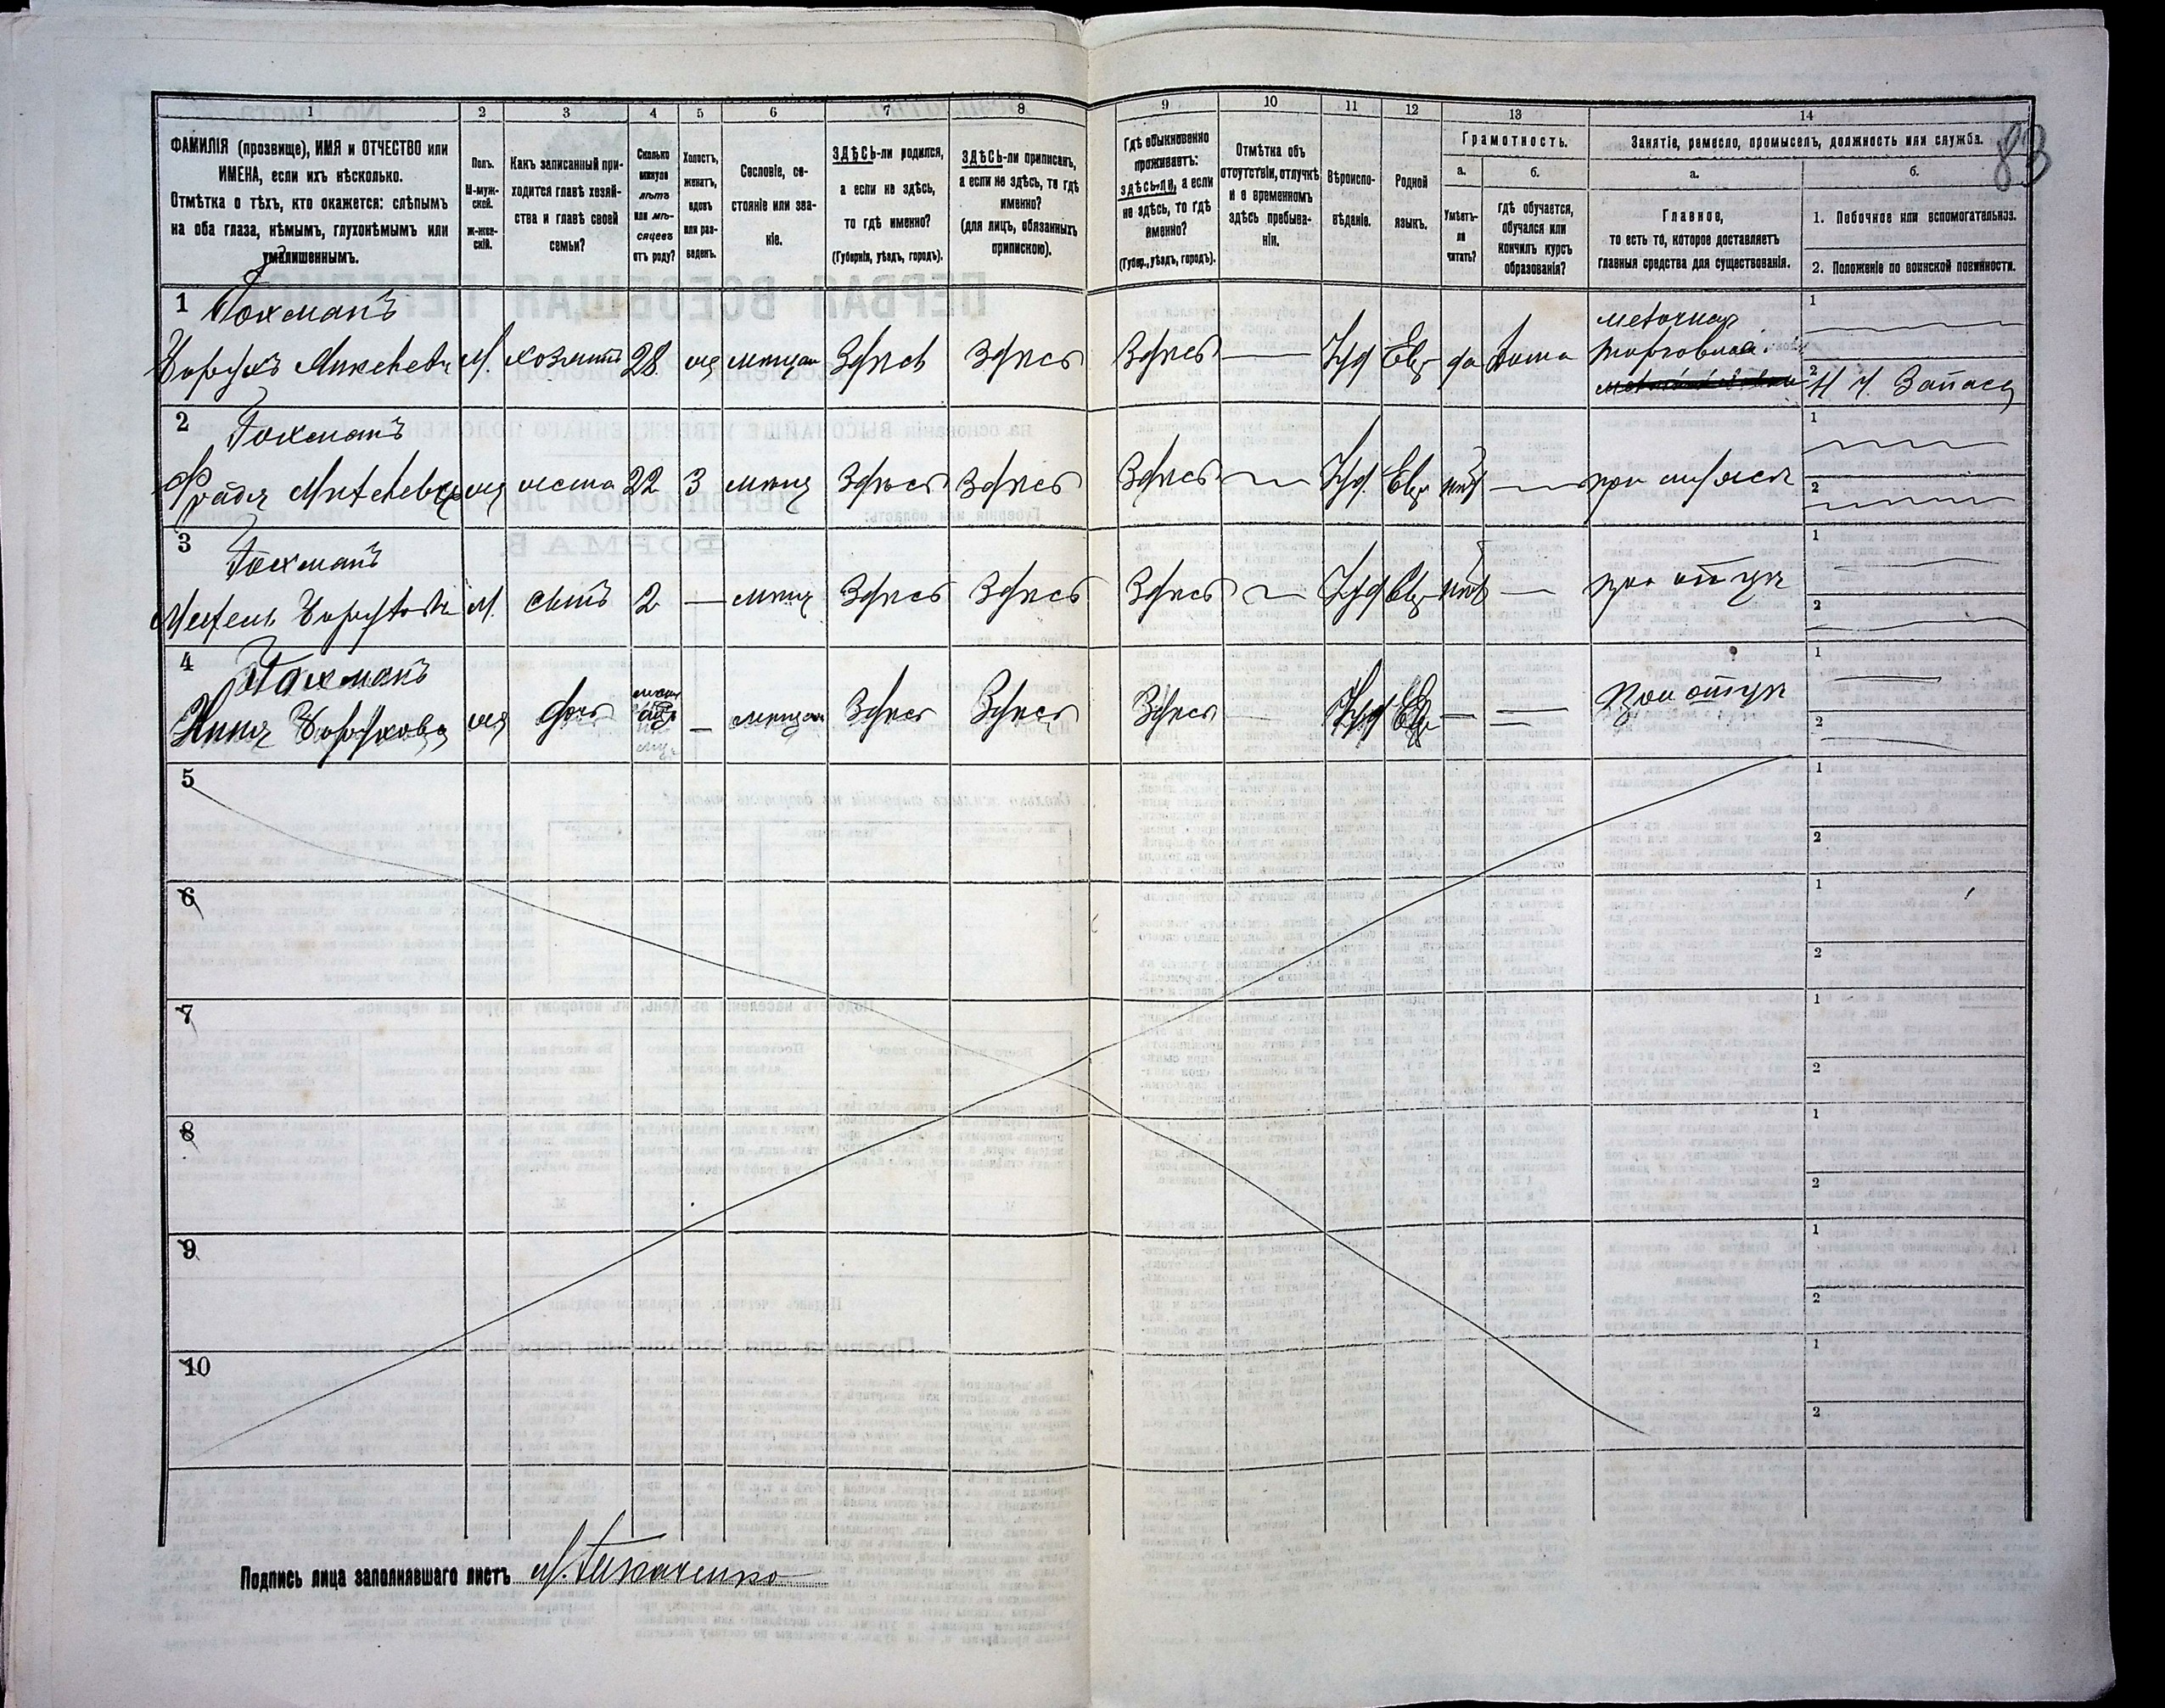 1
2
3
4
5
6
7
8
ФАМИЛІЯ (прозвище), ИМЯ и ОТЧЕСТВО или
ИМЕНА, если ихъ нѣсколько.
Отмѣтка о тѣхъ, кто окажется: слѣпымъ
на оба глаза, нѣмымъ, глухонѣмымъ или
умалишеннымъ.
Полъ.
М-муж-
ской.
Ж-жен-
скій.
Какъ записанный при-
ходится главѣ хозяй-
ства и главѣ своей
семьи?
Сколько
минуло
лѣтъ
или мѣ-
сяцевъ
отъ роду?
Холостъ,
женатъ,
вдовъ
или раз-
веденъ.
Сословіе, со-
стояніе или зва-
ніе.
ЗДѢСЬ-ли родился,
а если не здѣсь,
то гдѣ именно?
(Губернія, уѣздъ, городъ).
ЗДѢСЬ-ли приписанъ,
а если не здѣсь, то гдѣ
именно?
(для лицъ, обязанныхъ
припискою).
9
10
11
12
13
14
Гдѣ обыкновенно
проживаетъ:
здѣсь-ли, а если
не здѣсь, то гдѣ
именно?
(Губер., уѣздъ, городъ).
Отмѣтка объ
отсутствіи, отлучкѣ
и о временномъ
здѣсь пребыва-
ніи.
Вѣроиспо-
вѣданіе.
Родной
языкъ.
Грамотность.
а.
Умѣетъ-
ли
читать?
б.
гдѣ обучается,
обучался или
кончилъ курсъ
образованія?
Занятіе, ремесло, промыселъ, должность или служба.
83
а.
Главное,
то есть то, которое доставляетъ
главныя средства для существованія.
б.
1. Побочное или вспомогательное.
2. Положеніе по воинской повинности.
1 Гохманъ
М. хозяинъ 28 мѣщан Здѣсь Здѣсь Здѣсь Іуд Евр да дома
мелочная
торговля
1
2 Н Ч. Запаса
2 Гохманъ
жена 22 З мѣщ Здѣсь Здѣсь Здѣсь Іуд. Евр нѣт при мужѣ
1
2
3 Гохманъ
М. сынъ 2 мѣщ Здѣсь Здѣсь Здѣсь Іуд Евр нѣт при отцѣ
1
2
4 Гохманъ
дочь мѣщан Здѣсь Здѣсь Здѣсь Іуд Евр при отцѣ
1
2
5
1
2
6
1
2
7
1
2
8
1
2
9
1
2
10
1
2
Подпись лица заполнявшаго листъ